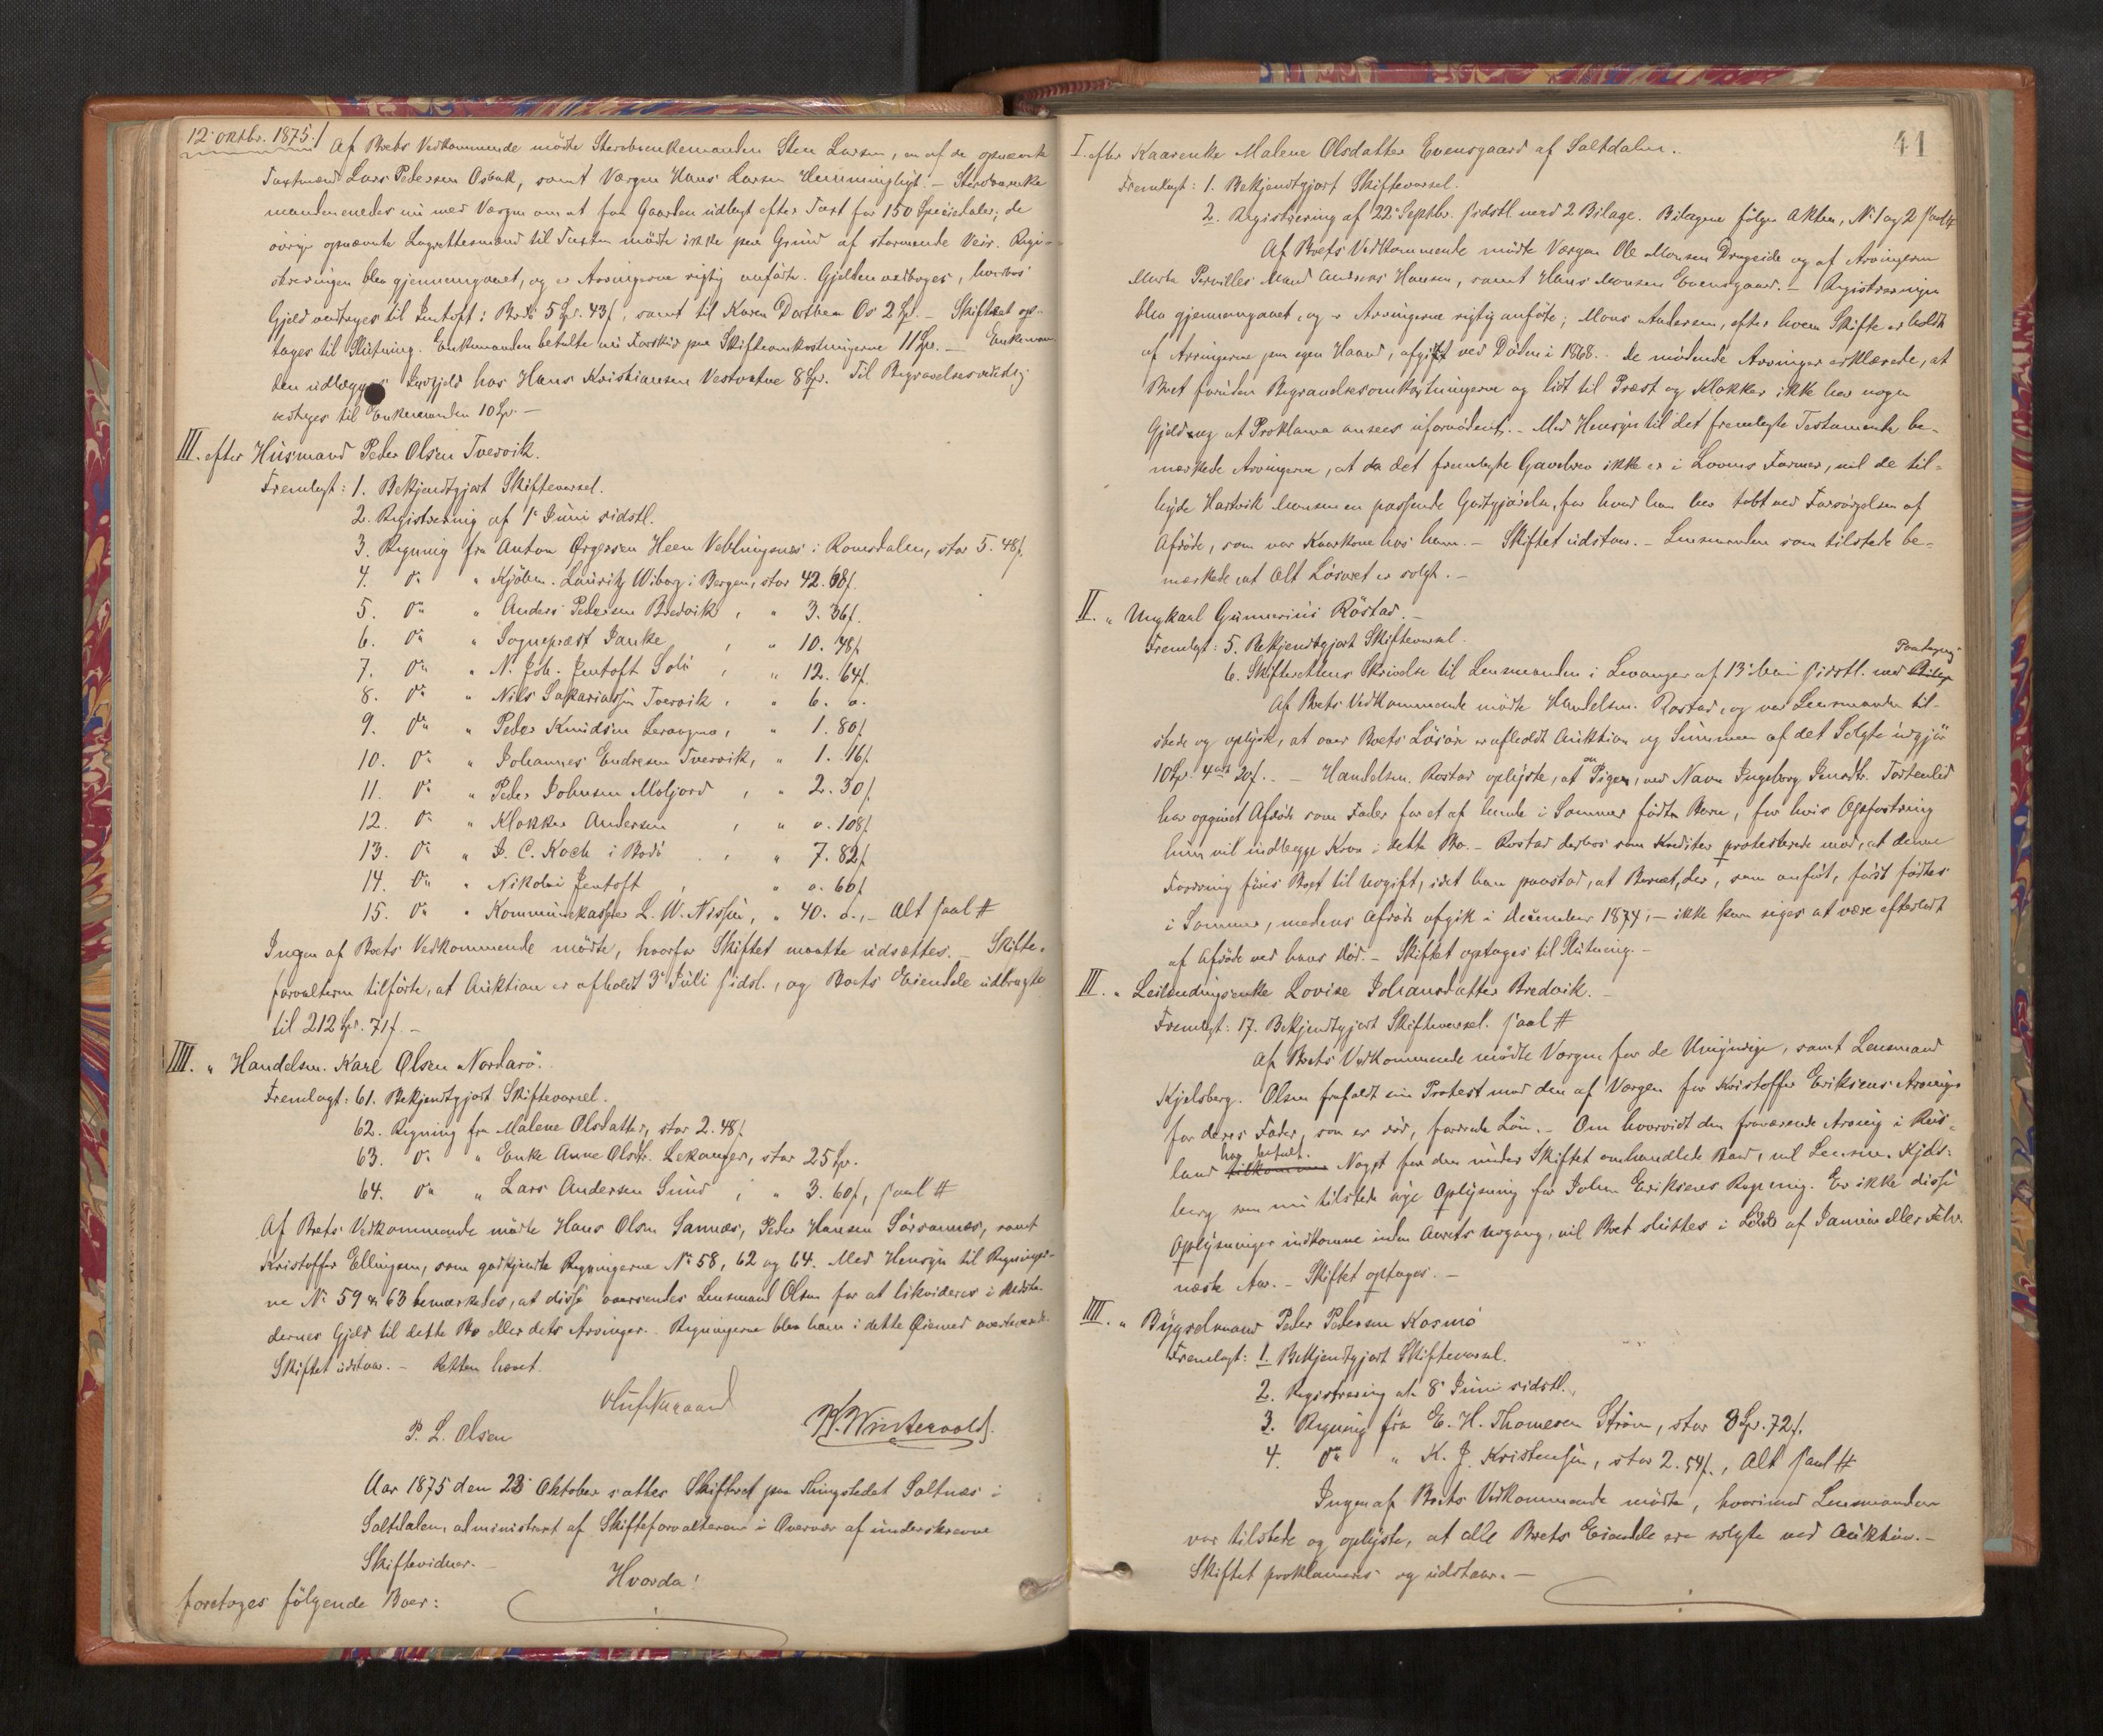 12. Oktbr. 1875. / Af Boets Vedkommende mödte Sterbboenkemanden Sten Larsen, en af de opnævnte
Taxtmænd Lars Pedersen Osbak, samt Værgen Hans Larsen. - Sterbboenke
manden enedes nu med Værgen om at faa Gaarden udlagt efter Taxt for 150 Speciedaler; de
övrige opnævnte Lagrettesmænd til Taxten mödte ikke paa Grund af stormende Veir. Regi-
streringen blev gjennemgaaet, og er Arvingerne rigtig anförte. Gjælden vedtoges, hvorhos
Gjeld vedtoges til Jentoft: Bodö 5 Spr. 43 f, samt til Karen Dorthea Os 2 Sp. - Skiftet op-
tages til Slutning. Enkemanden betalte nu Forskud paa Skifteomkostningerne 11 Spr. - Enkeman
den udlægges hos Hans Kristiansen Vestvatne 8 Spr. Til Begravelsesudlæg
vedtoges til Enkemanden 10 Sp. -
III. efter Husmand Peder Olsen Tvervik.
Fremlagt: 1. Bekjendtgjort Skiftevarsel.
2. Registrering af 1. Juni sidstl.
3. Regning fra Anton Ørgersen Heen Veblungsnes i Romsdalen, stor 5. 48 f.
4. do " Kjöbm. Lauritz Wiborg i Bergen, stor 42. 68 f.
5. do " Anders Pedersen Bredvik, " 3. 36 f.
6. do " Sognepræst Janke, " 10. 78 f.
7. do " N. Joh. Jentoft Solö, " 12. 64 f.
8. do " Nils Sakariassen Tvervik, " 6. o.
9. do " Peder Knudsen Leivogmo, " 1. 80 f
10. do " Johannes Endresen Tvervik, " 1. 16 f.
11. do " Peder Johnsen Moljord, " 2. 30 f
12. do " Klokker Andersen, " o. 108 f.
13. do " J. C. Koch i Bodö, " 7. 82 f
14. do " Nikolai Jentoft, " o. 60 f
15. do " Kommunekasserer L. W. Nissen, " 40. o., - Alt saal #
Ingen af Boets Vedkommende mödte, hvorfor Skiftet maatte udsættes. - Skifte-
forvalteren tilförte, at Auktion er afholdt 3. Juli sidstl., og Boets Eiendele udbragte
til 212 Spr. 71 f. -
IIII. " Handelsm. Karl Olsen Nordarö.
Fremlagt: 61. Bekjendtgjort Skiftevarsel.
62. Regning fra Malene Olsdatter, stor 2. 48 f.
63. do " Enke Anne Olsdtr. Lekanger, stor 25 Sp.
64. do " Lars Andersen Sund, " 3. 60 f, saal #
Af Boets Vedkommende mödte Hans Olsen Sannæs, Peder Hansen Sörsannæs, samt
Kristoffer Ellingsen, som godkjendte Regningerne No 58, 62 og 64. Med Hensyn til Regninger-
ne No 59 & 63 bemærkedes, at disse oversendes Lensmand Olsen for at likvideres i
dernes Gjeld til dette Bo eller dets Arvinger. Regningerne blev ham i dette Øiemed overleveret.
Skiftet udstaar. - Retten hævet.
P. L. Olsen
H. Wintervold.
Aar 1875 den 23. Oktober sattes Skifteret paa Thingstedet Saltnæs i
Saltdalen, administrert af Skifteforvalteren i Overvær af underskrevne
Skiftevidner.
Hvorda!
foretoges fölgende Boer:
41
I. efter Kaarenke Malene Olsdatter Evensgaard af Saltdalen.
Fremlagt: 1. Bekjendtgjort Skiftevarsel.
2. Registrering af 22. Septbr. sidstl. med 2 Bilage. Bilagene fölger Akten, No 1 og 2 saal #
Af Boets Vedkommende mödte Værgen Ole Monsen Drageide og af Arvingerne
Marta Pernilles Mand Andreas Hansen, samt Hans Monsen Evensgaard. - Registreringen
blev gjennemgaaet, og er Arvingerne rigtig anförte; Mons Andersen, efter hvem Skifte er holdt
af Arvingerne paa egen Haand, afgik ved Döden i 1868. - De mödende Arvinger erklærede, at
Boet foruden Begravelsesomkostningerne og lidt til Præst og Klokker ikke har nogen
Gjeld og at Proklama ansees ufornödent. - Med Hensyn til det fremlagte Testamente be-
mærkede Arvingerne, at da det fremlagte Gavebrev ikke er i Lovens Former, vil de til-
Hartvik Monsen en passende Godtgjörelse, for hvad han har tabt ved Forsörgelsen af
Afdöde, som var Kaarkone hos ham. - Skiftet udstaar. - Lensmanden som tilstede be-
mærkede at Alt Lösöret er solgt. -
II. " Ungkarl Gunnerius Röstad. -
Fremlagt: 5. Bekjendtgjort Skiftevarsel.
6. Skifterettens Skrivelse til Lensmanden i Levanger af 13. Mai sidstl. med Paategning
Af Boets Vedkommende mödte Handelsm. Rostad, og var Lensmanden til-
stede og oplyste, at over Boets Lösöre er afholdt Auktion og Summen af det Solgte udgjör
10 Spr. 4 ort 20 f. - Handelsm. Rostad oplyste, at en Pige, ved Navn Ingeborg Jensdtr. Tortenlid
har opgivet Afdöde som Fader for et af hende i Sommer födte Barn, for hvis Opfostring
hun vil indlægge Krav i dette Bo. - Rostad derhos som Kreditor protesterede mod, at denne
Fordring föres Boet til Udgift, idet han paastod, at Barnet, der, som anfört, förs födtes
i Sommer, medens Afdöde afgik i December 1874, - ikke kan siges at være efterladt
af Afdöde ved hans Död. - Skiftet optages til Slutning. -
III. " Leilendingsenke Lovise Johansdatter Bredvik. -
Fremlagt: 17. Bekjendtgjort Skiftevarsel. saal #
Af Boets Vedkommende mödte Værgen for de Umyndige, samt Lensmand
Kjelsberg. Olsen frafaldt sin Protest mod den af Værgen for Kristoffer Eriksens Arvinge
for deres Fader, som er död, Lön. - Om hvorvidt den fraværende Arving i Rus-
land har betalt Noget for den under Skiftet omhandlede Baad, vil Lensm. Kjels-
berg som nu tilstede söge Oplysning for Johan Eriksens Regning. Er ikke disse
Oplysninger indkomne inden Aarets Udgang, vil Boet sluttes i Löbet af Januar eller Febr.
næste Aar. - Skiftet optages. -
IIII. " Bygselmand Peder Pedersen Kosmo
Fremlagt: 1. Bekjendtgjort Skiftevarsel.
2. Registrering af 8. Juni sidstl.
3. Regning fra E. H. Thomesen Ström, stor 8 Spr. 72 f.
4. do " K. J. Kristensen, stor 2. 54 f., Alt saal #
Ingen af Boets Vedkommende mödte, hvorimod Lensmanden
var tilstede og oplyste, at alle Boets Eiendele ere solgte ved Auktion. -
Skiftet proklameres og udstaar. -